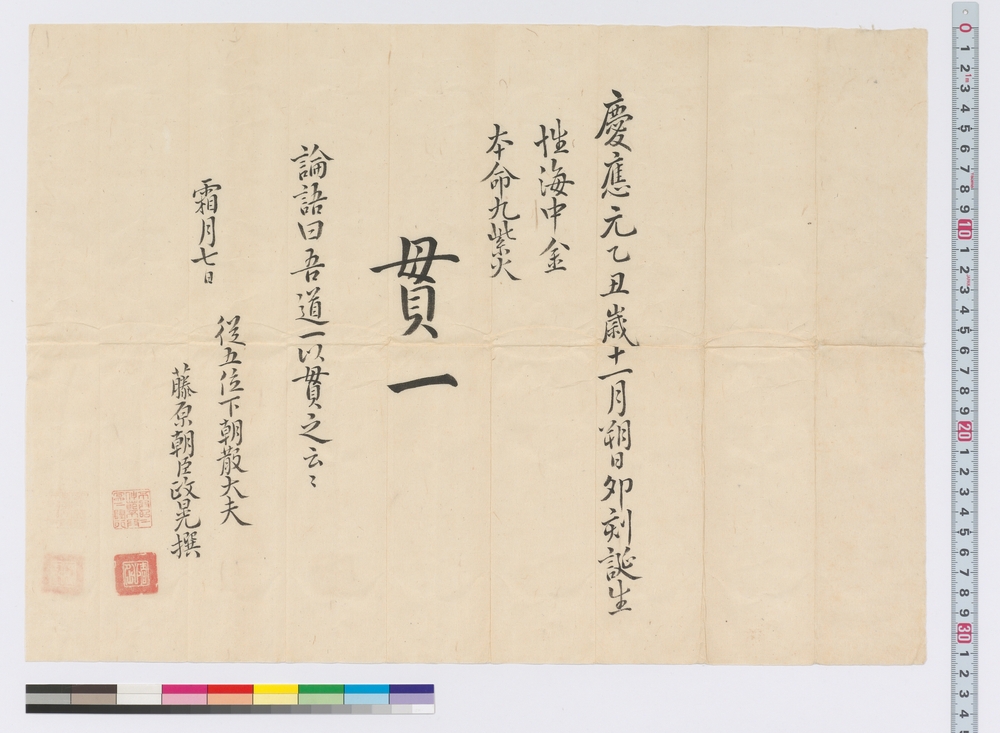 慶應元乙丑歳十一月朔日卯刻誕生
性海中金
本命九紫火
貫一
論語曰吾道一以貫之云々
霜月七日
従五位下朝散大夫
藤原朝臣政晃撰
0 1 2 3 4 5 6 7 8 9 10 1 2 3 4 5 6 7 8 9 20 1 2 3 4 5 6 7 8 9 30 1 2 3 4 5